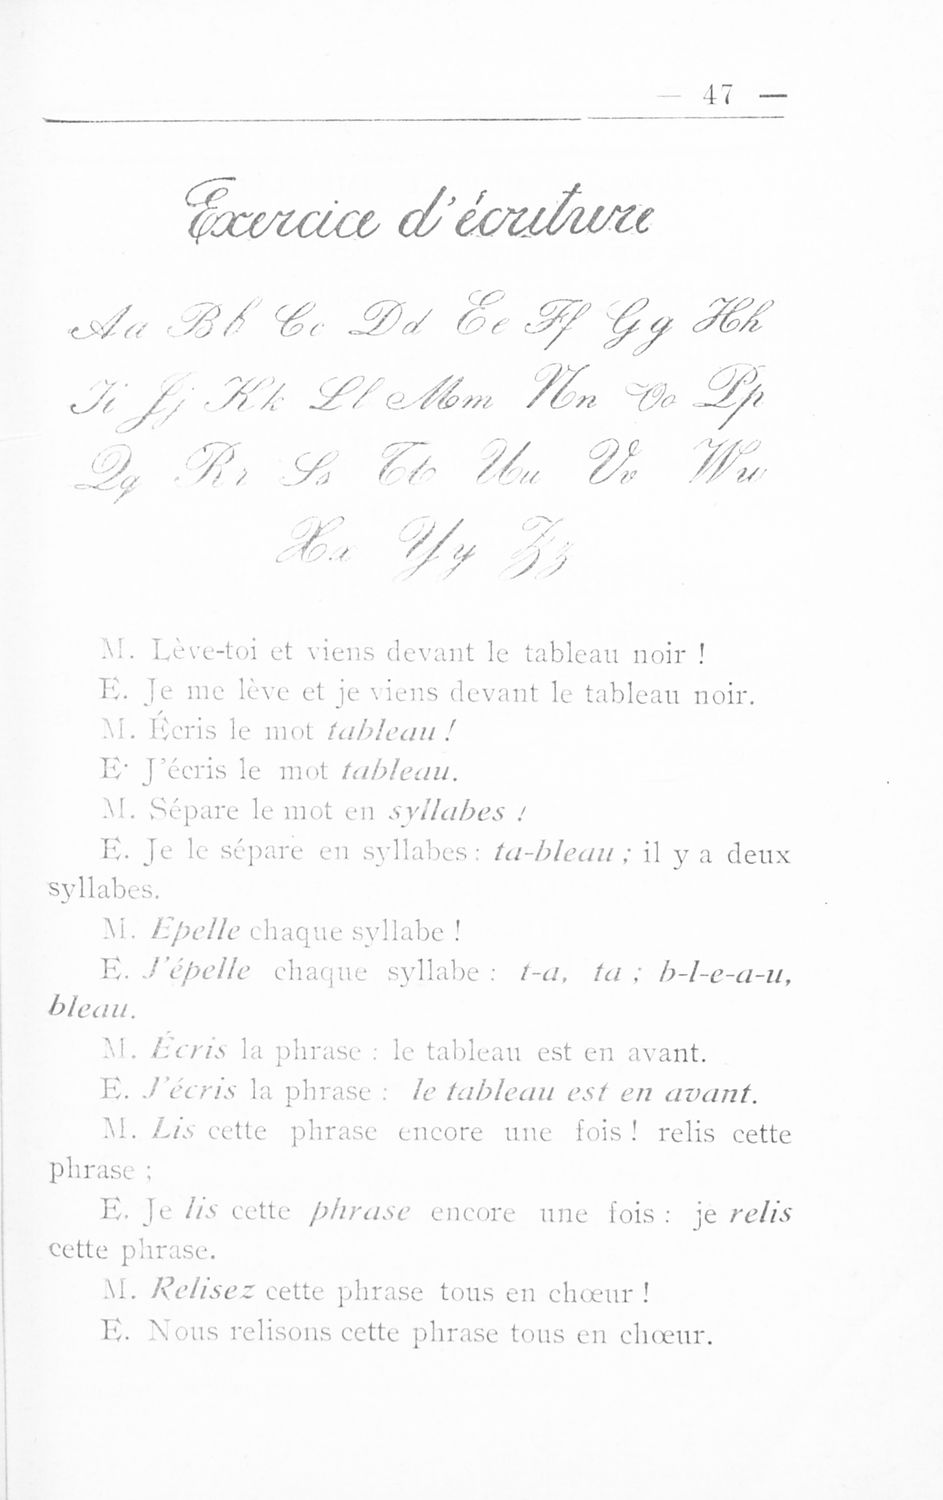 — 47 —
Exercice d'écriture
Aa Bb Cc Dd Ee Ff Gg Hh
Ii Jj Kk Ll Mm Nn Oo Pp
Qq Rr Ss Tt Uu Vv Ww
Xx Yy Zz
M. Lève-toi et viens devant le tableau noir !
E. Je me lève et je viens devant le tableau noir.
M. Écris le mot tableau !
E. J'écris le mot tableau.
M. Sépare le mot en syllabes !
E. Je le sépare en syllabes : ta-bleau ; il y a deux
syllabes.
M. Epelle chaque syllabe !
E. J'épelle chaque syllabe : t-a, ta ; b-l-e-a-u,
bleau.
M. Écris la phrase : le tableau est en avant.
E. J'écris la phrase : le tableau est en avant.
M. Lis cette phrase encore une fois ! relis cette
phrase ;
E. Je lis cette phrase encore une fois : je relis
cette phrase.
M. Relisez cette phrase tous en chœur !
E. Nous relisons cette phrase tous en chœur.